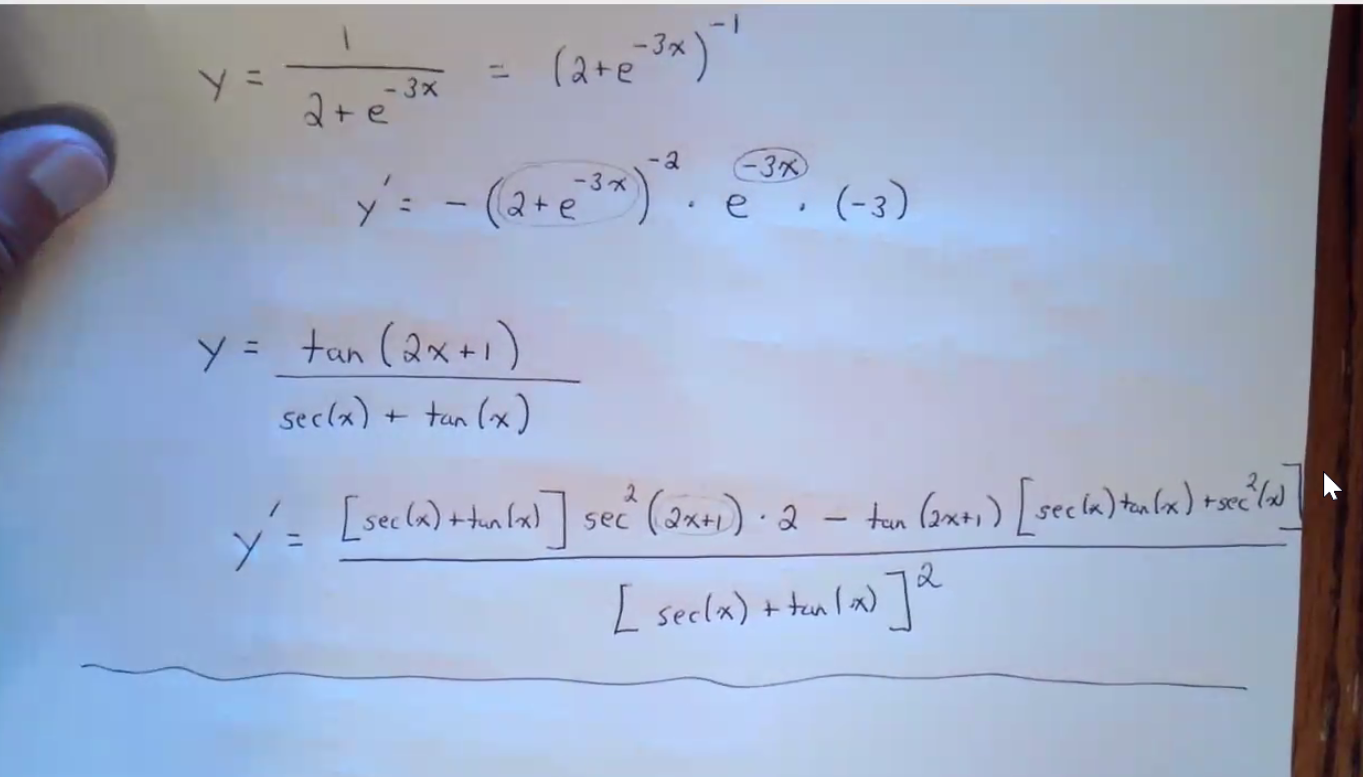 y = 1/(2+e^(-3x)) = (2+e^(-3x))^(-1)
y' = -(2+e^(-3x))^(-2) · e^(-3x) · (-3)
y = tan(2x+1)/(sec(x) + tan(x))
y' = ([sec(x)+tan(x)] sec²(2x+1) · 2 - tan(2x+1)[sec(x)tan(x)+sec²(x)])/[sec(x)+tan(x)]²